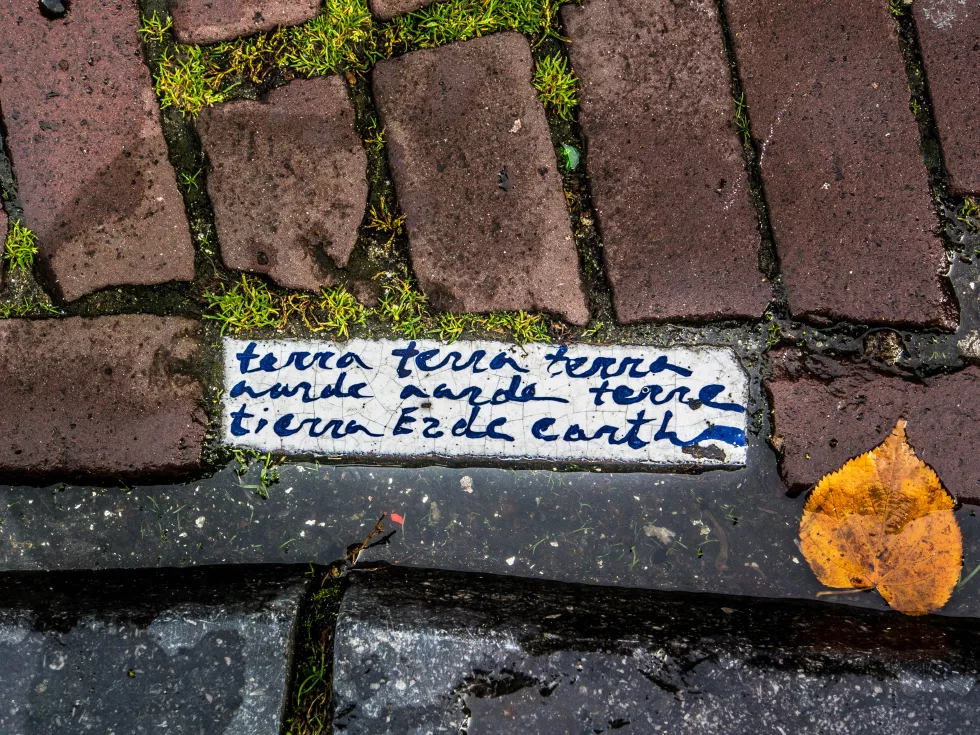 terra terra terra
aarde aarde terre
tierra Erde earth